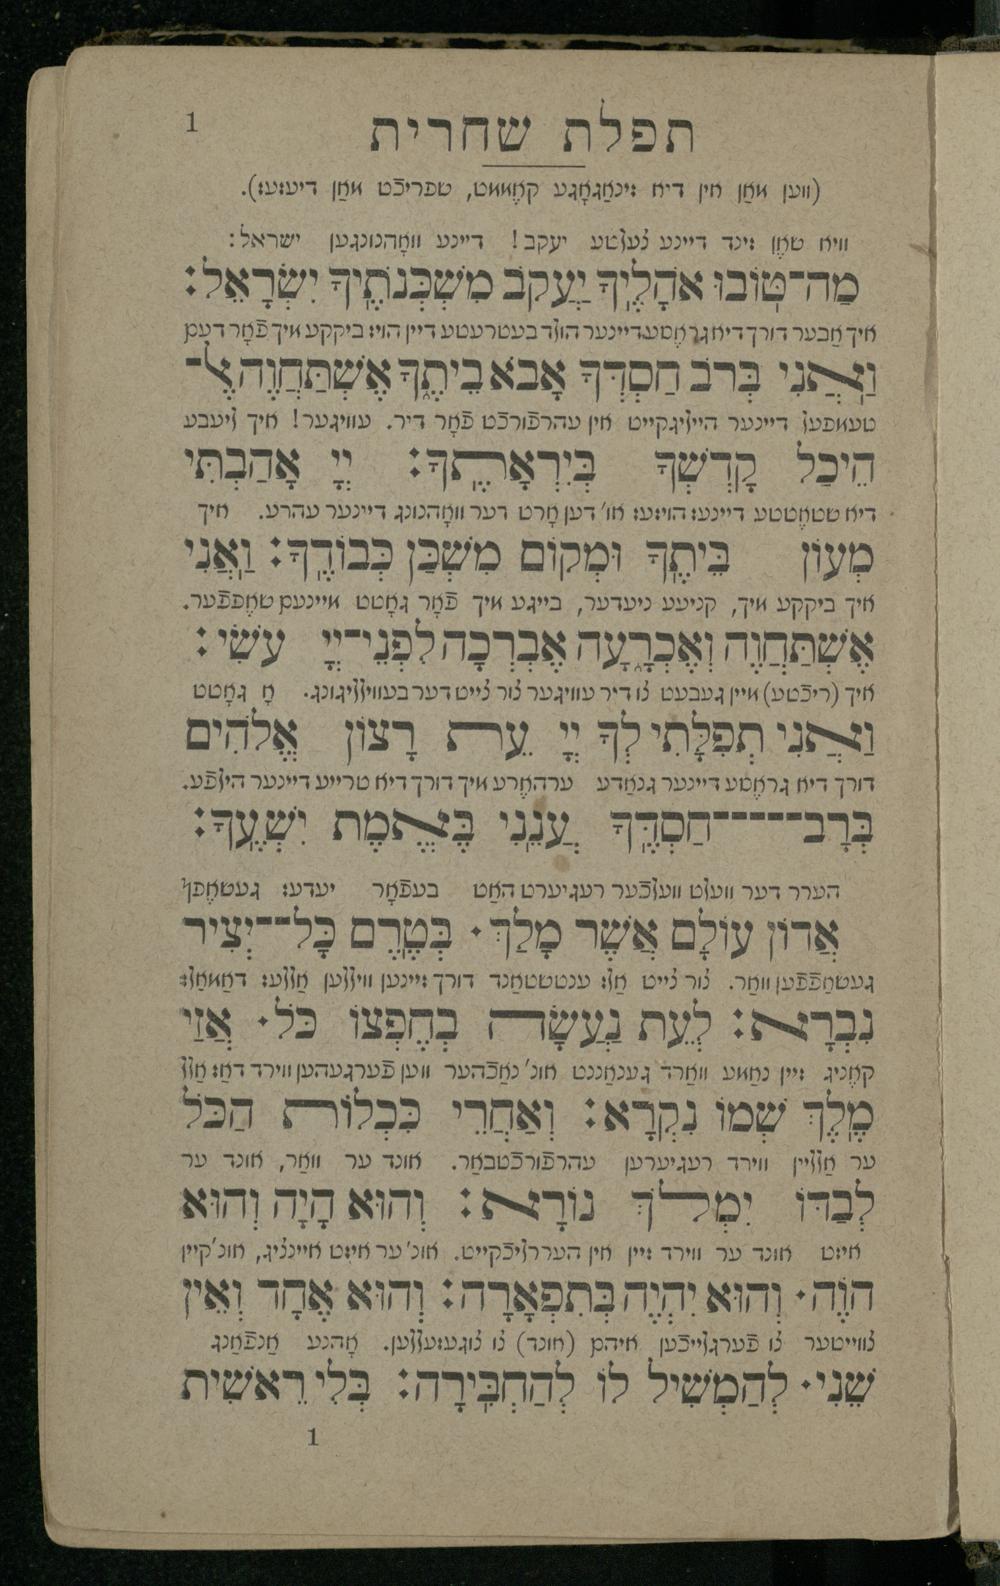 1
תפלת שחרית
(ווען מאַן אין דיא זינאַגאָגע קאָממט, שפריכֿט מאַן דיעזעז).
וויא שאָן זינד דיינע צעלטע יעקב! דיינע וואָהנונגען ישראל:
מַה־טֽוֹבוּ אֹהָלֶֽיךָ יַֽעֲקֹב מִשְׁכְּנֹתֶֽיךָ יִשְׂרָאֵל:
איך אַבער דורך דיא גראָסע דיינער הולד בעטרעטע דיין הויז ביקקע מיך פֿאָר דעם
וַֽאֲנִי בְּרֹב חַסְדְּךָ אָבֹא בֵיתֶֽךָ אֶשְׁתַּחֲוֶה אֶל־
טעמפעל דיינער הייליגקייט אין עהרפֿורכֿט פֿאָר דיר. עוויגער! איך ליעבע
הֵיכַל קָדְשְׁךָ בְּיִרְאָתֶֽךָ: יְיָ אָהַבְתִּי
דיא שטאָטטע דיינעז הויזעז או׳ דען אָרט דער וואָהנונג דיינער עהרע. איך
מְעוֹן בֵּיתֶֽךָ וּמְקוֹם מִשְׁכַּן כְּבוֹדֶֽךָ: וַֽאֲנִי
איך ביקקע מיך, קניעע ניעדער, בייגע מיך פֿאָר גאָטט מיינעם שאָפפֿער.
אֶשְׁתַּחֲוֶה וְאֶכְרָֽעָה אֶבְרְכָה לִפְנֵי־יְיָ עֹשִׂי:
איך (ריכֿטע) מיין געבעט צו דיר עוויגער צור צייט דער בעווילליגונג. אָ גאָטט
וַֽאֲנִי תְפִלָּתִי לְךָ יְיָ עֵת רָצוֹן אֱלֹהִים
דורך דיא גראָסע דיינער גנאַדע ערהאָרע מיך דורך דיא טרייע דיינער הילפֿע.
בְּרָב־חַסְדֶּֽךָ עֲנֵנִי בֶּֽאֱמֶת יִשְׁעֶֽךָ:
הערר דער וועלט וועלכֿער רעגיערט האַט בעפֿאָר יעדעז געשאָפף
אֲדוֹן עוֹלָם אֲשֶׁר מָלַךְ. בְּטֶֽרֶם כָּל־יְצִיר
געשאַפֿפֿען וואַר. צור צייט אַלז ענטשטאַנד דורך זיינען וויללען אַללעז דאַמאַלז
נִבְרָא: לְעֵת נַֽעֲשָׂה בְחֶפְצוֹ כֹּל. אֲזַי
קאָניג זיין נאַמע וואַרד גענאַננט אונ׳ נאַכֿהער ווען פֿערגעהען ווירד דאַז אַלל
מֶֽלֶךְ שְׁמוֹ נִקְרָא: וְאַחֲרֵי כִּכְלוֹת הַכֹּל
ער אַללין ווירד רעגיערען עהרפֿורכֿטבאַר. אונד ער וואַר, אונד ער
לְבַדּוֹ יִמְלֹךְ נוֹרָא: וְהוּא הָיָה וְהוּא
איזט אונד ער ווירד זיין אין העררליכֿקייט. אונ׳ ער איזט איינציג, אונ׳ קיין
הוֶֹה. וְהוּא יִהְיֶה בְּתִפְאָרָה: וְהוּא אֶחָד וְאֵין
צווייטער צו פֿערגלייכֿען איהם (אונד) צו צוגעזעללען. אָהנע אַנפֿאַנג
שֵׁנִי. לְהַמְשִׁיל לוֹ לְהַחְבִּֽירָה: בְּלִי רֵאשִׁית
1